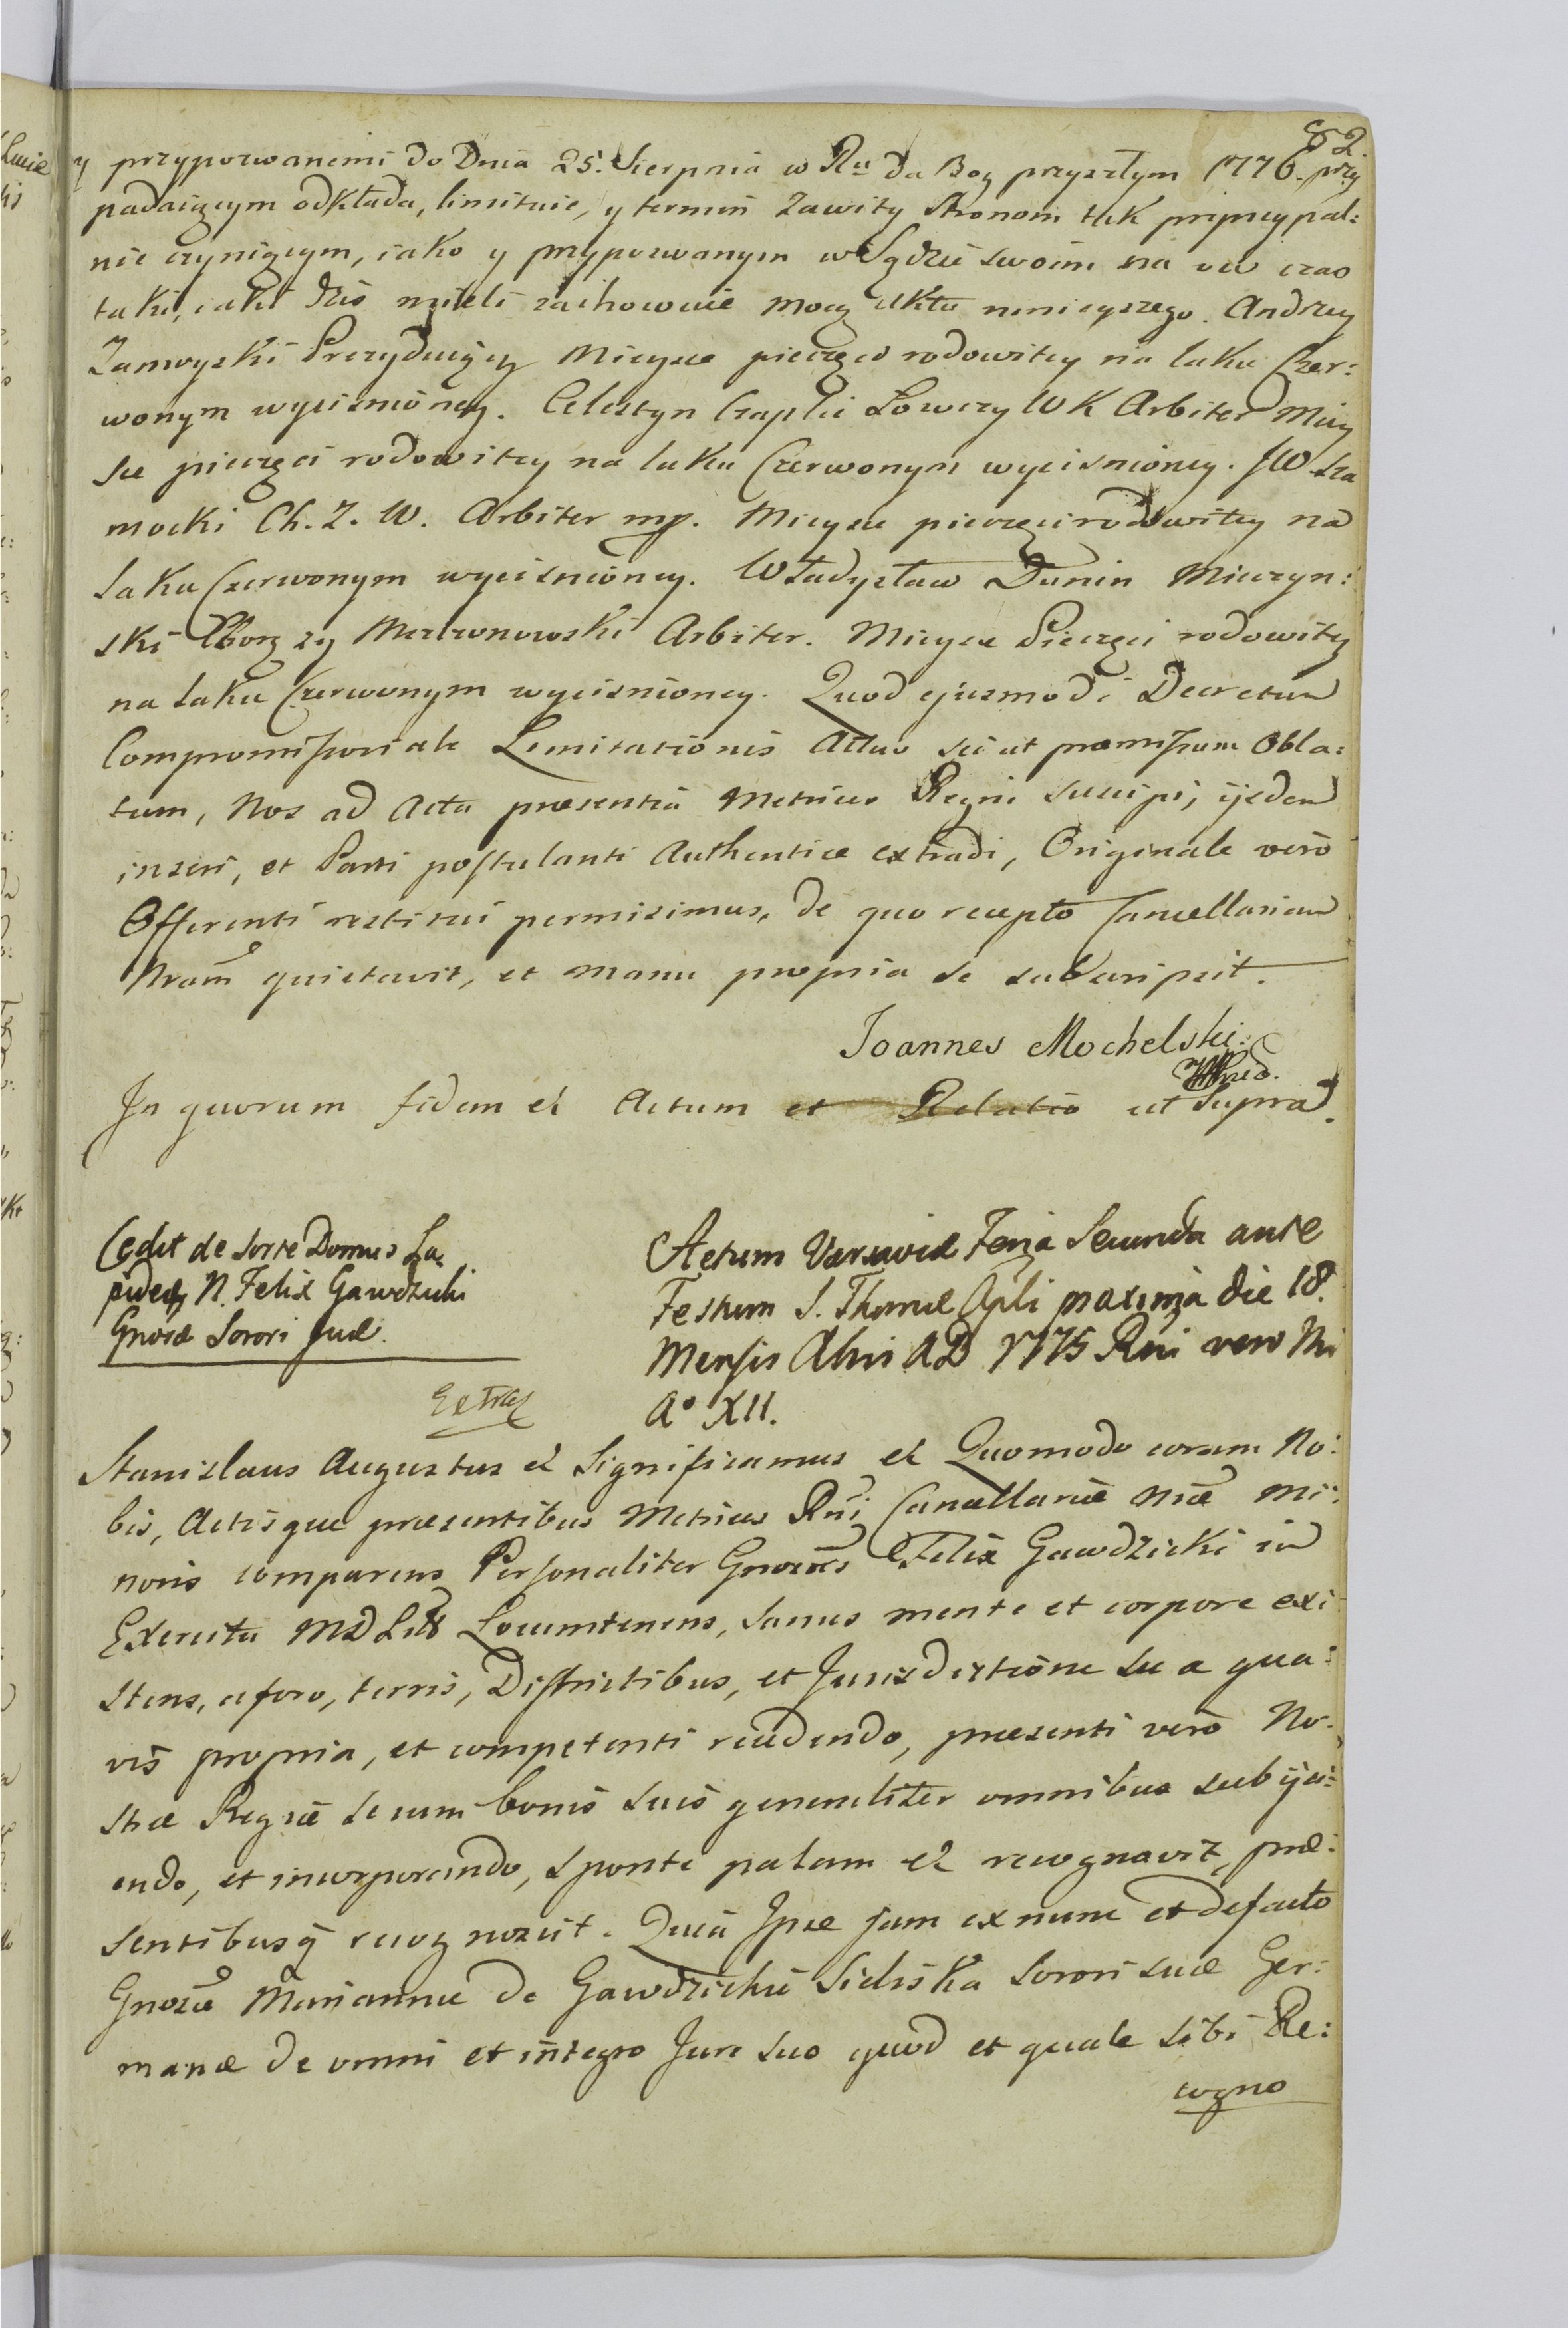 82.
y przypozwanemi do Dnia 25. Sierpnia w Rū da Bog przyszłym 1776. przy
padaiącym odkłada, limituie, y termin zawity Stronom tak pryncypal:
nie czyniącym, iako y przypozwanym w Sądzie swoim na ów czas
taki, iaki dziś mieli zachowuie mocą Aktu ninieyszego. Andrzey
Zamoyski Prezyduiący Mieysce pieczęci rodowitey na laku Czer:
wonym wycisnioney. Celestyn Czaplic Łowczy WK Arbiter Miey
sce pieczęci rodowitey na laku Czerwonym wycisnioney. JW Sza
mocki Ch. Z. W. Arbiter mp. Mieysce pieczęci rodowitey na
laku Czerwonym wycisnioney. Władysław Dunin Mieczyn:
ski Zborzy Arbiter. Mieysce Pieczęci rodowitey
na laku Czerwonym wycisnioney. Quod ejusmodi Decretum
Compromissoriale Limitationis Actus sicut præmissum Obla:
tum, Nos ad Acta præsentia Metrices Regni suscipi, ijsdem
inseri, et Parti postulanti Authentice extradi, Originale verò
Offerenti restitui permisimus, de quo recepto Cancellariam
Nram quietavit, et manu propria se subscripsit.
Joannes Mochelski
In quorum fidem et Actum et Relatio ut supra.
Cedit de sorte Domus La
pideæ N. Felix Gawdzicki
Gnosæ Sorori suæ.
Extrad
Actum Varsaviæ Feria Secunda ante
Festum S. Thomæ Apli proxima die 18.
Mensis Xbris AD 1775 Rni vero Nri
A° XII.
Stanislaus Augustus et Significamus et Quomodo coram No:
bis, Actisque præsentibus Metrices Rni Cancellariæ Nræ Mi:
noris comparens Personaliter Gnosus Felix Gawdzicki in
Exercitu MDLitt Locumtenens, sanus mente et corpore exi
stens, a foro, terris, Districtibus, et Jurisdictione sua qua:
vis propria, et competenti recedendo, præsenti verò No:
stræ Regiæ se cum bonis suis generaliter omnibus subijci:
endo, et incorporando, sponte palam et recognovit, præ:
sentibusq recognoscit. Quia Ipse jam ex nunc et de facto
Gnosæ Mariannæ de Gawdzickie Sieliska Sorori suæ Ger:
manæ de omni et integro Jure suo quod et quale sibi Re:
cogno